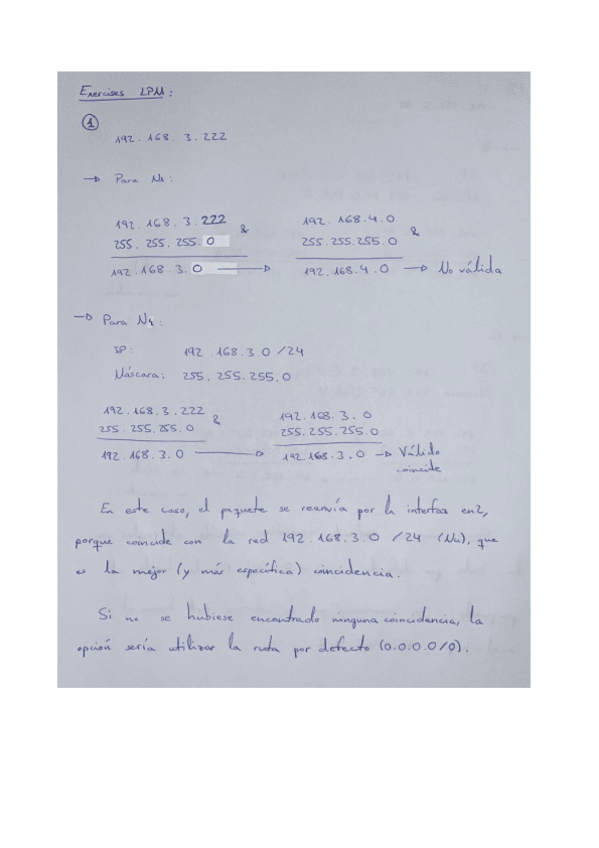 Exercises LPM:
①
192.168.3.222
→ Para N1:
192.168.3.222 &
255.255.255.0
192.168.3.0 →
192.168.4.0 &
255.255.255.0
192.168.4.0 → No válida
→ Para N2:
IP: 192.168.3.0 /24
Máscara: 255.255.255.0
192.168.3.222 &
255.255.255.0
192.168.3.0 →
192.168.3.0
255.255.255.0
192.168.3.0 → Válido
coincide
En este caso, el paquete se reenvía por la interfaz en2,
porque coincide con la red 192.168.3.0 /24 (N2), que
es la mejor (y más específica) coincidencia.
Si no se hubiese encontrado ninguna coincidencia, la
opción sería utilizar la ruta por defecto (0.0.0.0/0).